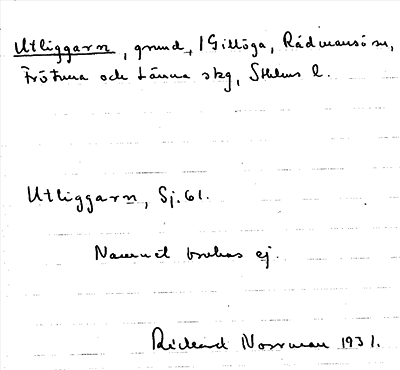 Utliggarn, grund, /Gillöga, Rådmansö sn,
Frötuna och Länna skg, Sthlms l.
Utliggarn, Sj. 61.
Namnet brukas ej.
Rickard Norrman 1931.